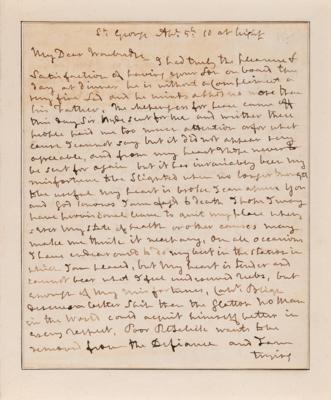 St. George Apl. 5th. 10 at night
My Dear Troubridge I had truly the pleasure &
Satisfaction of having your Son on board this
day at dinner he is without a compliment a
very fine Lad and he minds about no more than
his Father, The helper for peace came off
this day Sir Hyde sent for me and wither these
people paid me too much attention or for what
cause I cannot say but it did not appear very
agreeable, and from my heart I hope never to
be sent for again but it has invariably been my
misfortune to be Slighted when no longer thought
to be useful my heart is broke I can assure you
and God knows I am fag'd to death I hope I may
have provisional leave to quit my place when
ever my state of health or other causes may
make me think it necessary, on all occasions
I have endeavoured to do my best in the station in
which I am placed, but my heart is tender and
cannot bear what I feel undeserved rubs, but
enough of my misfortunes, Capt.
deserves a better Ship than the Glatton No Man
in the World could acquit himself better in
every respect, Poor Retalick wants to be
removed from the Defiance and I am
trying